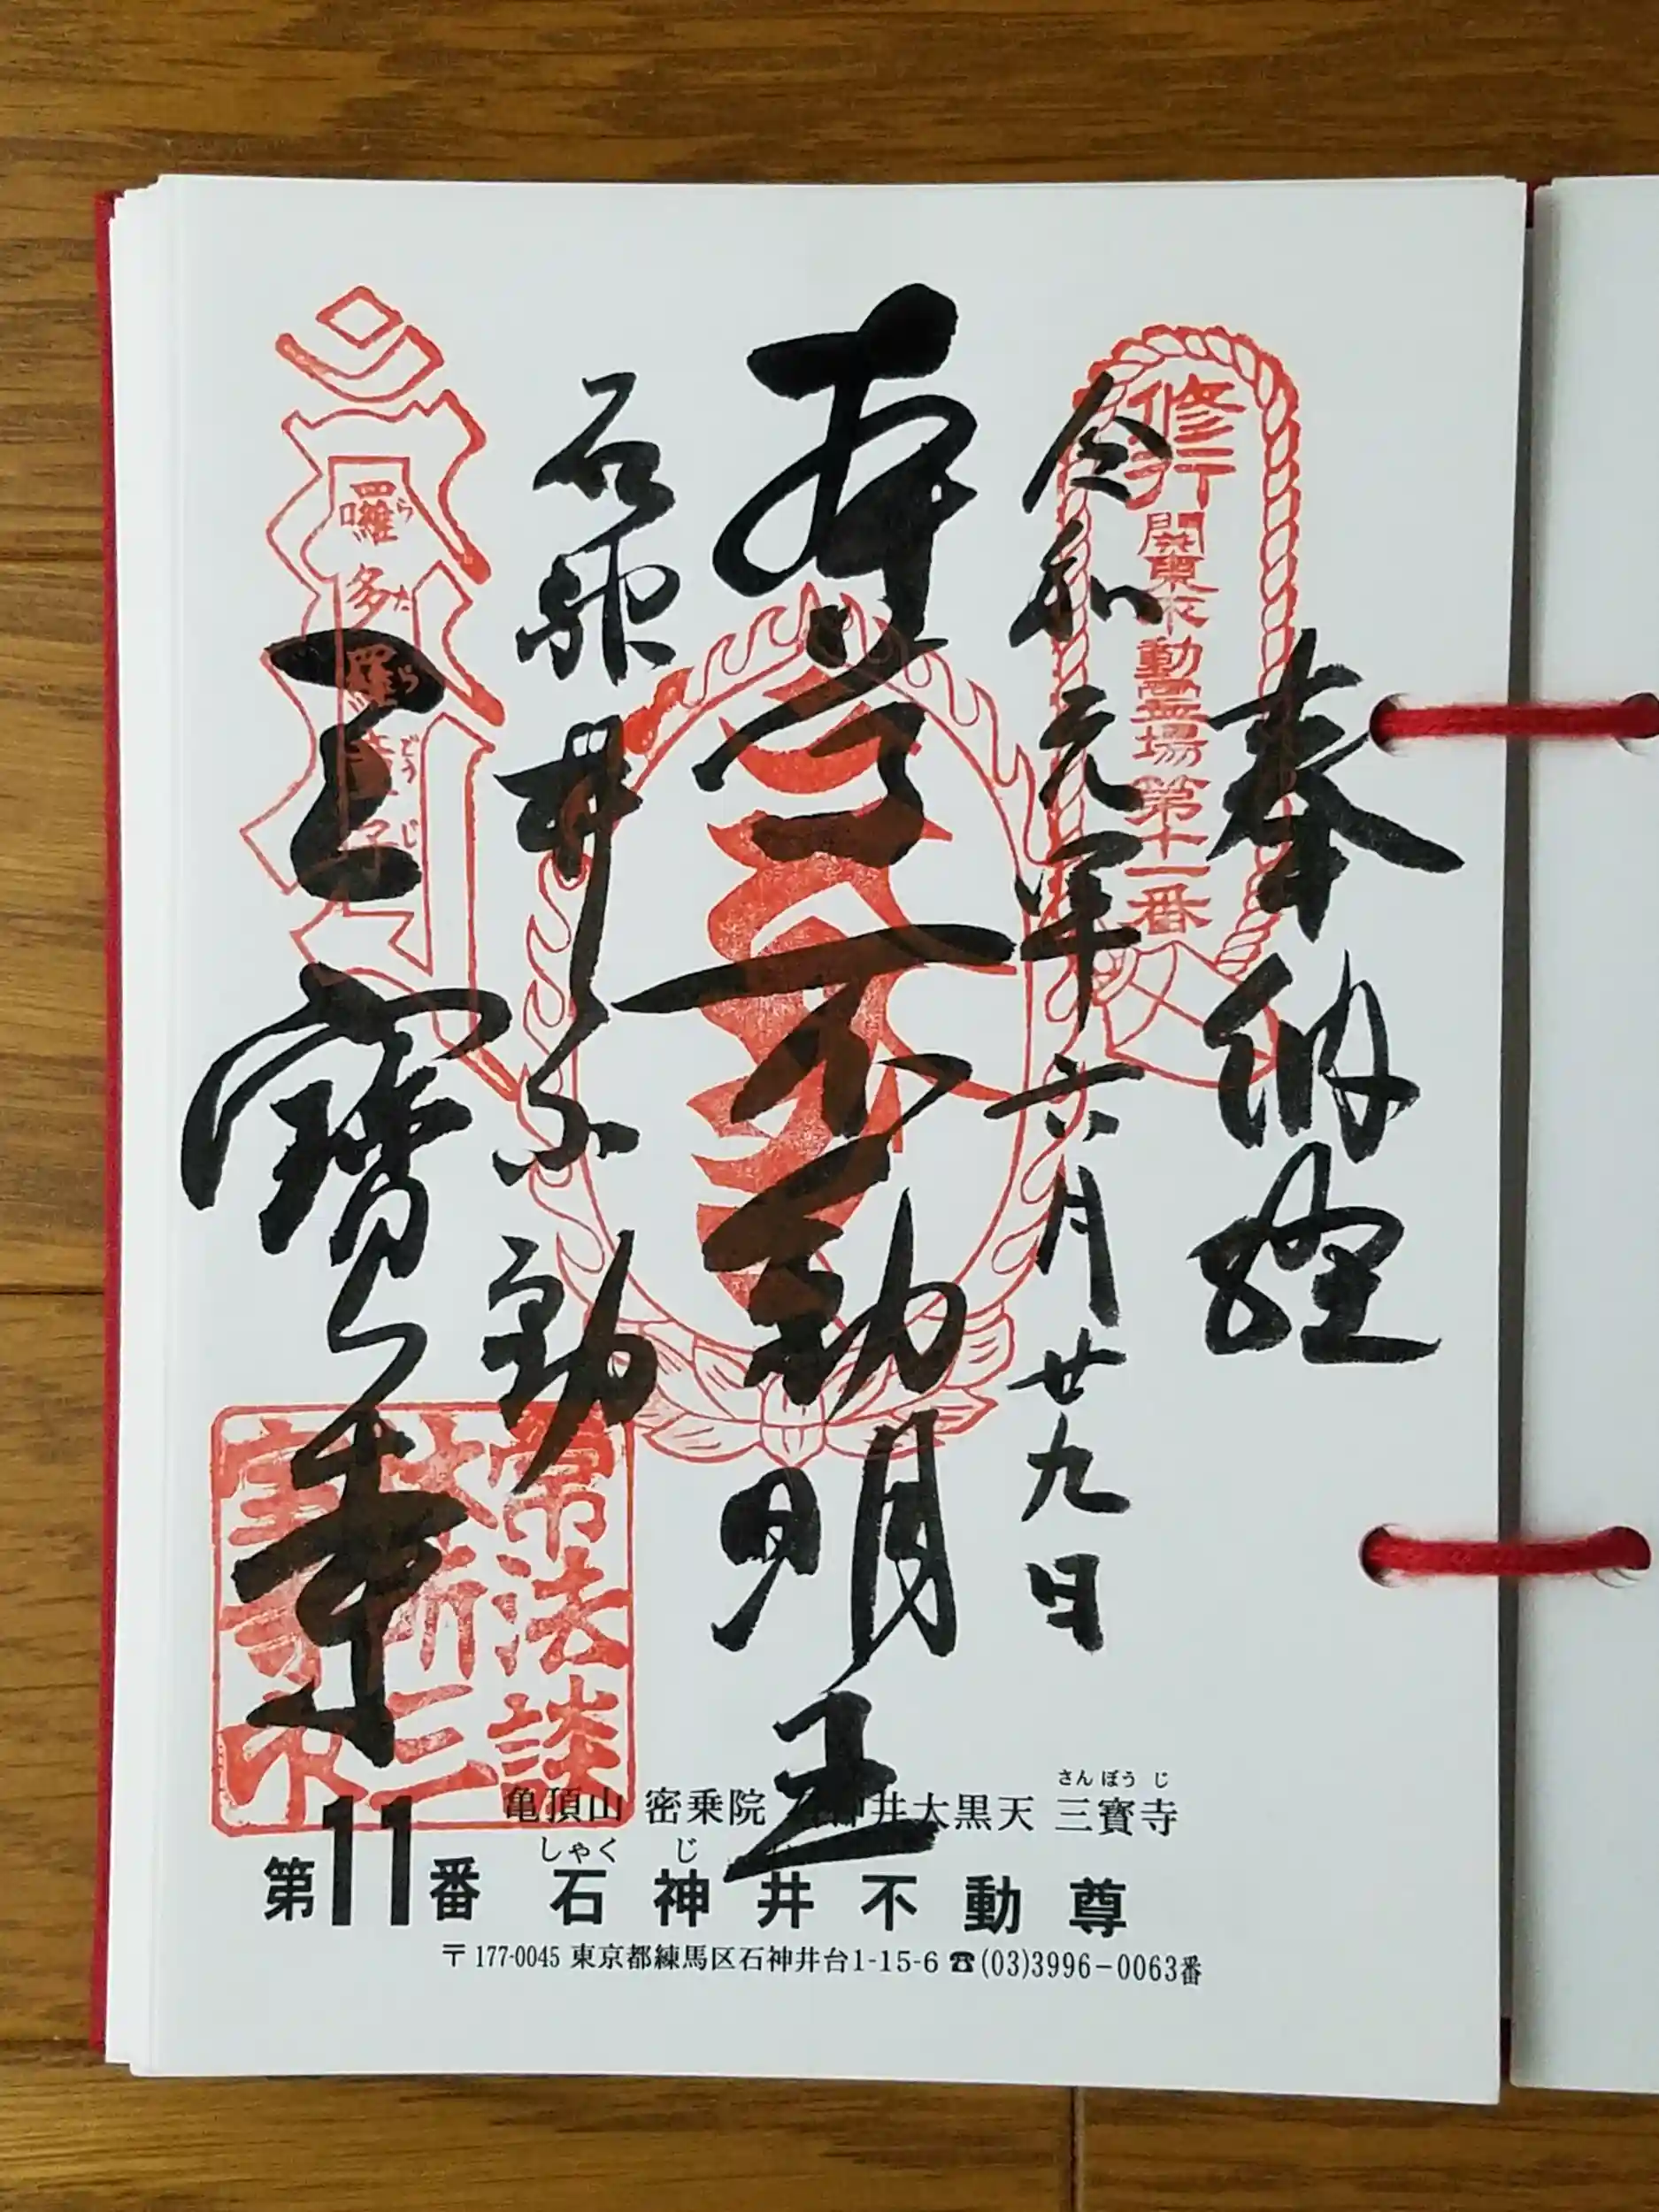 奉納経
修行
関東不動霊場第十一番
令和元年六月廿九日
本尊不動明王
石神井不動
三寳寺
囉多羅童子
らたらどうじ
常法談
亀頂山 密乗院 神井大黒天 三寳寺
さんぼうじ
第11番 石神井不動尊
しゃくじ
〒177-0045 東京都練馬区石神井台1-15-6 ☎(03)3996-0063番